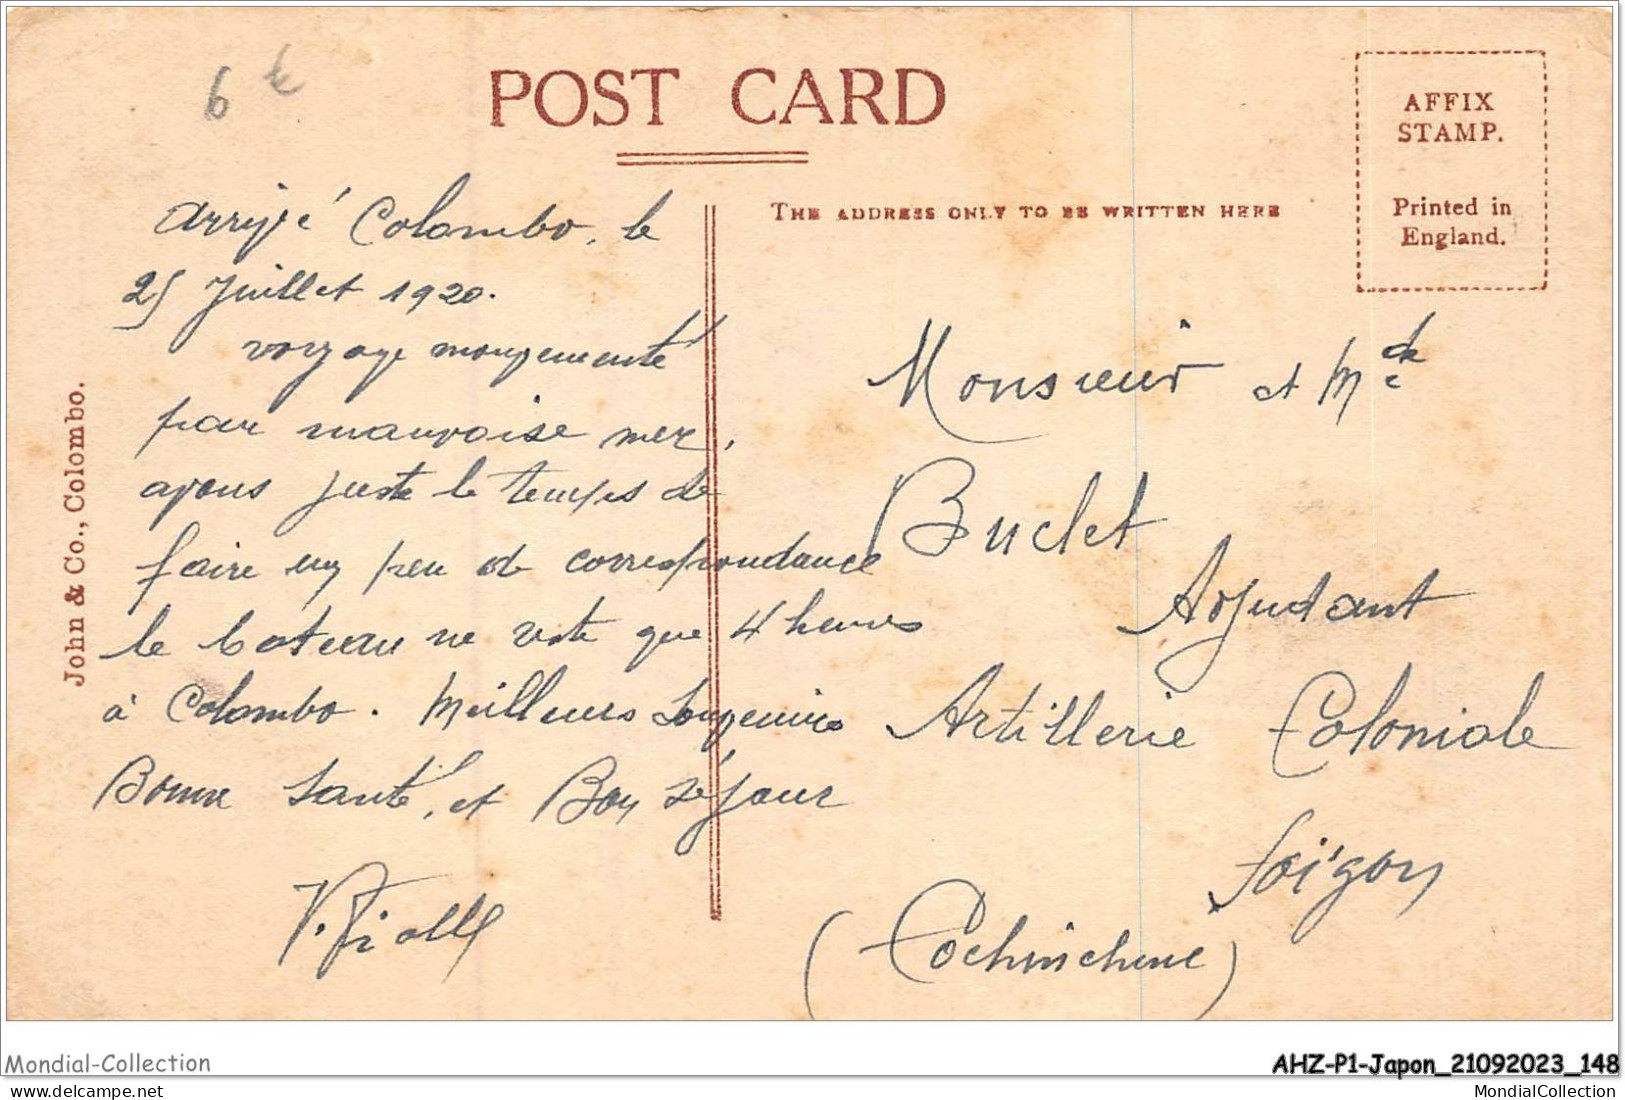 6 €
POST CARD
AFFIX
STAMP.
Printed in
England.
THE ADDRESS ONLY TO BE WRITTEN HERE
John & Co., Colombo.
Arrivé Colombo, le
25 Juillet 1920.
voyage mouvementé
par mauvaise mer,
avons juste le temps de
faire un peu de correspondance
le bateau ne reste que 4 heures
à Colombo. Meilleurs Souvenirs
Bonne Santé, et Bon séjour
Monsieur et Mde
Buclet
Adjudant
Artillerie Coloniale
Saïgon
(Cochinchine)
Mondial-Collection
AHZ-P1-Japon_21092023_148
MondialCollection